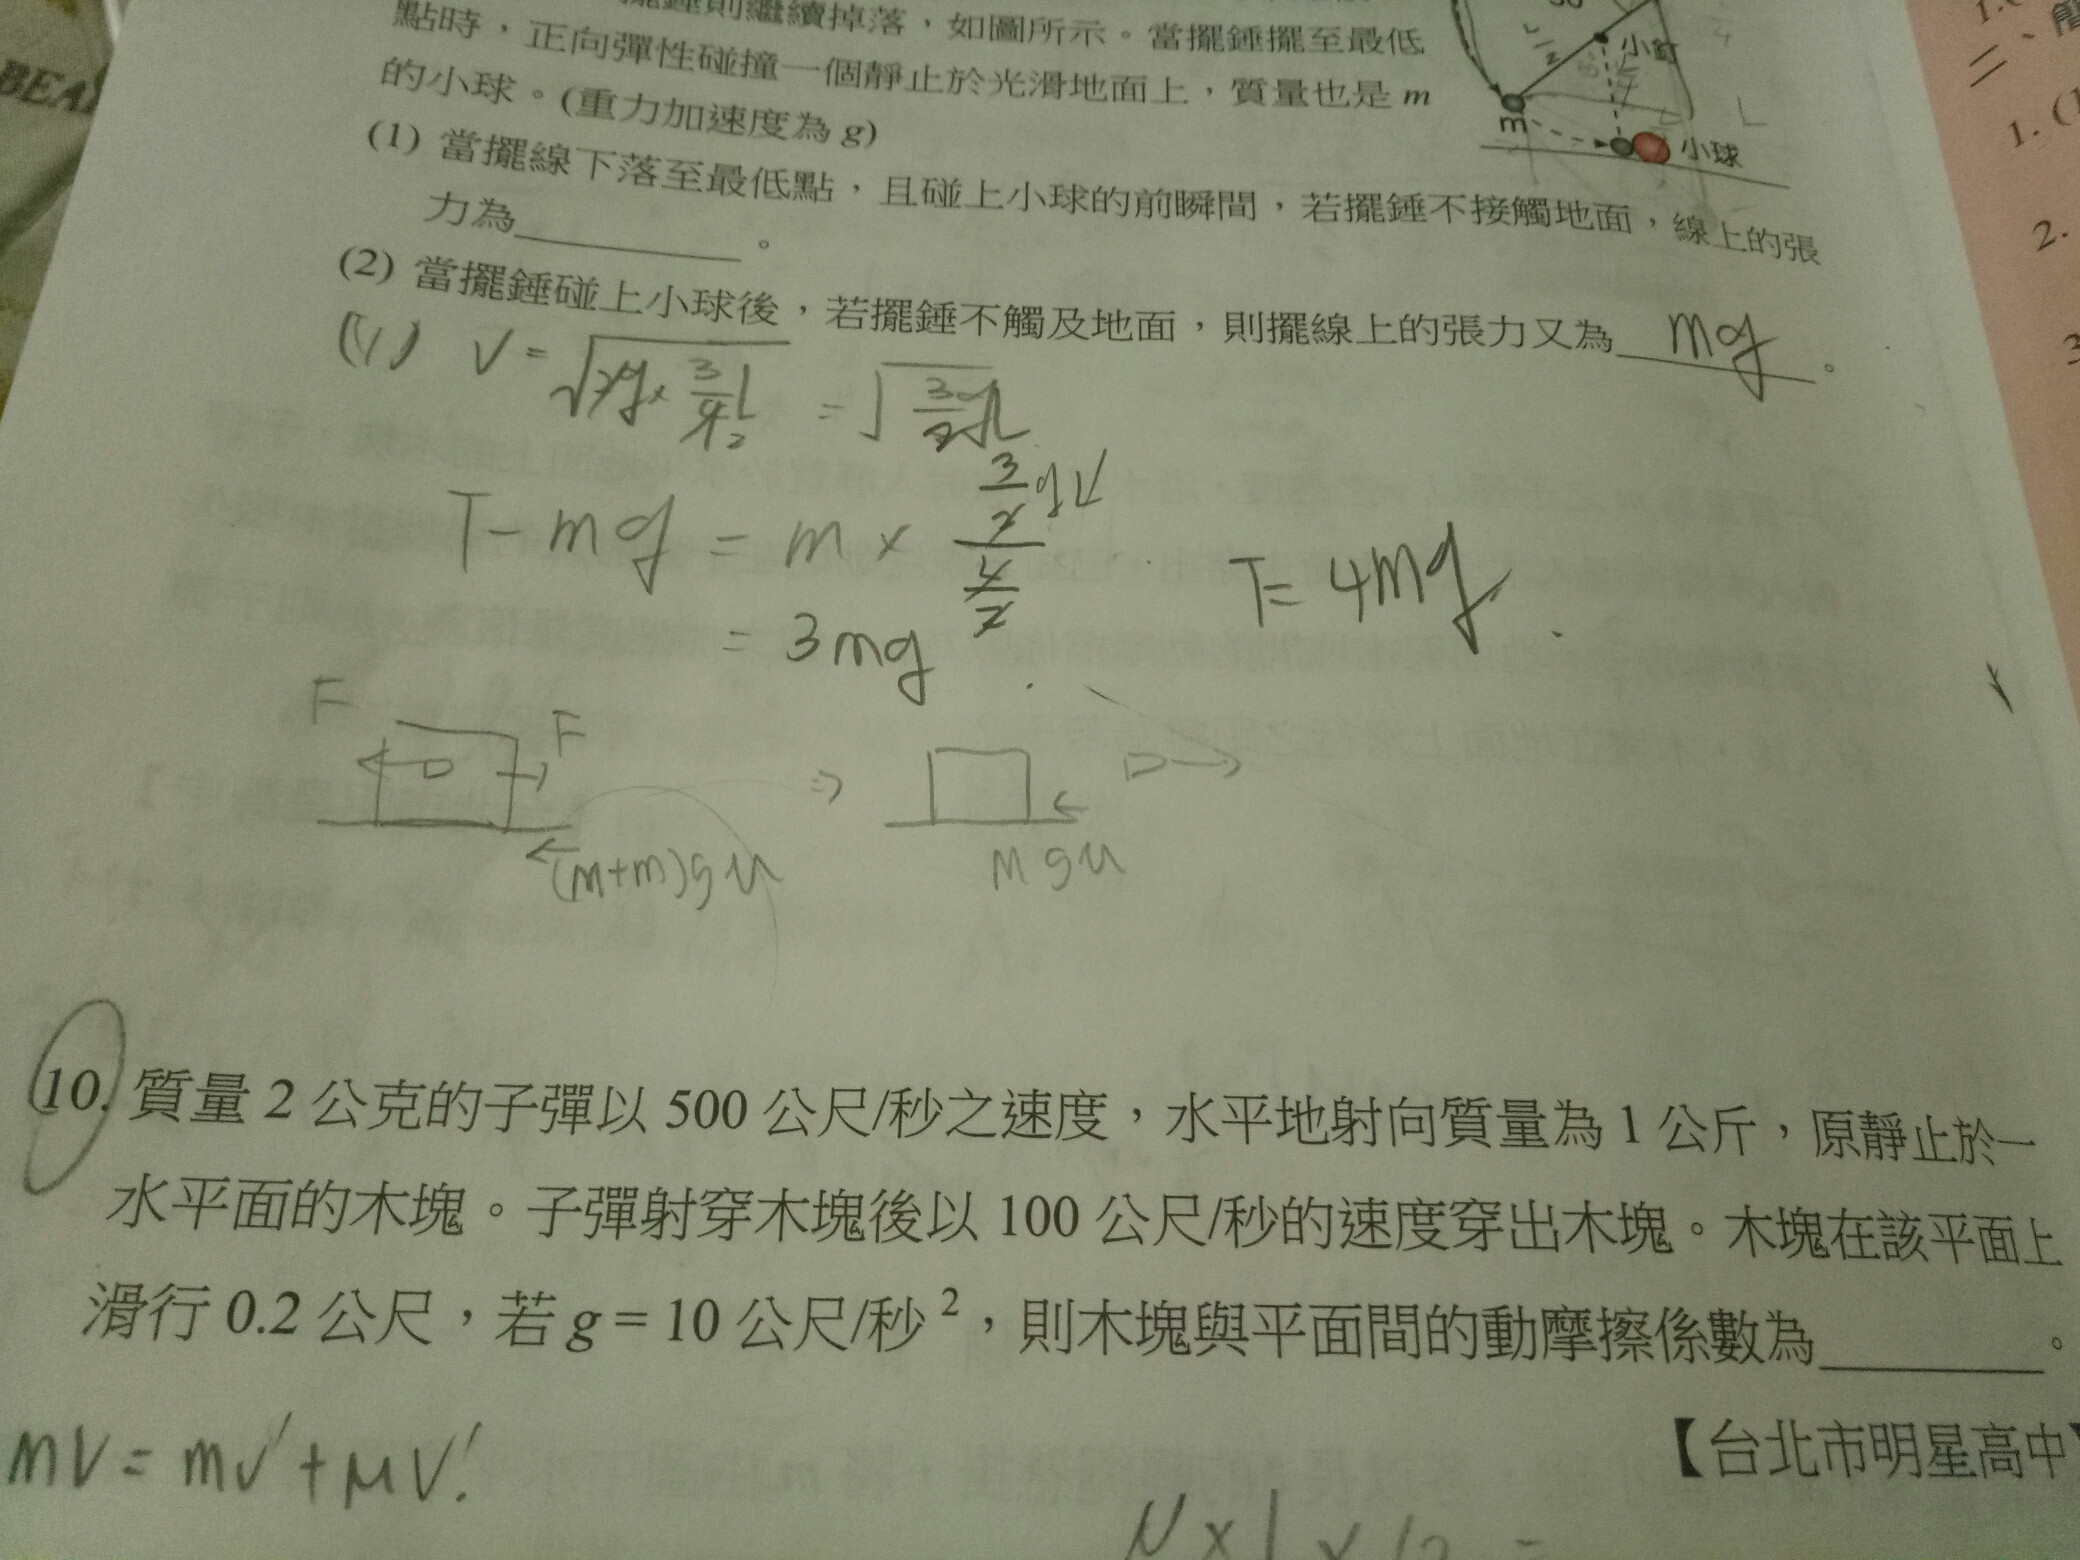 擺錘則繼續掉落，如圖所示。當擺錘擺至最低
點時，正向彈性碰撞一個靜止於光滑地面上，質量也是 m
的小球。(重力加速度為 g)
小釘
L/2
m
小球
L
BEA
(1) 當擺線下落至最低點，且碰上小球的前瞬間，若擺錘不接觸地面，線上的張
力為________。
(2) 當擺錘碰上小球後，若擺錘不觸及地面，則擺線上的張力又為 mg 。
(1) V = √(2g × 3/4 L) = √(3gL/2)
T - mg = m × (3/2 gL)/(L/2)
= 3mg
T = 4mg
F F
(m+m)gμ
⇒
Mgμ
10. 質量 2 公克的子彈以 500 公尺/秒之速度，水平地射向質量為 1 公斤，原靜止於一
水平面的木塊。子彈射穿木塊後以 100 公尺/秒的速度穿出木塊。木塊在該平面上
滑行 0.2 公尺，若 g = 10 公尺/秒²，則木塊與平面間的動摩擦係數為________。
【台北市明星高中】
mV = mv' + MV'
二、
1. (1
2.
3